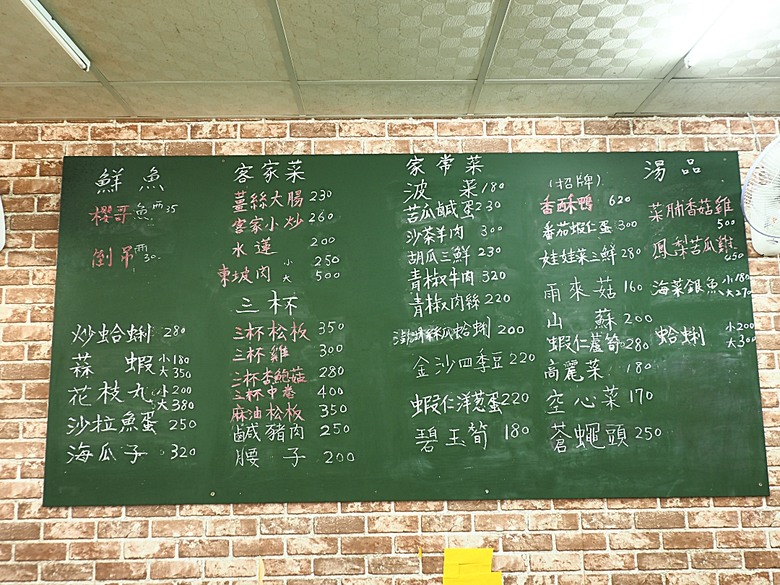 鮮魚
櫻哥魚兩35
倒吊兩30.
炒蛤蜊 280
蒜蝦 小180 大350
花枝丸 小200 大380
沙拉魚蛋 250
海瓜子 320
客家菜
薑絲大腸 230
客家小炒 260
水蓮 200
東坡肉 小 250 大 500
三杯
三杯松板 350
三杯雞 300
三杯杏鮑菇 280
三杯中卷 400
麻油松板 350
鹹豬肉 250
腰子 200
家常菜
波菜 180
苦瓜鹹蛋 230
沙茶羊肉 300
胡瓜三鮮 230
青椒牛肉 320
青椒肉絲 220
澎湖絲瓜蛤蜊 200
金沙四季豆 220
蝦仁洋蔥蛋 220
碧玉筍 180
(招牌)
香酥鴨 620
番茄蝦仁蛋 300
娃娃菜三鮮 280
雨來菇 160
山蘇 200
蝦仁蘆筍 280
高麗菜 180
空心菜 170
蒼蠅頭 250
湯品
菜脯香菇雞 500
鳳梨苦瓜雞 450
海菜銀魚 小180 大270
蛤蜊 小200 大300